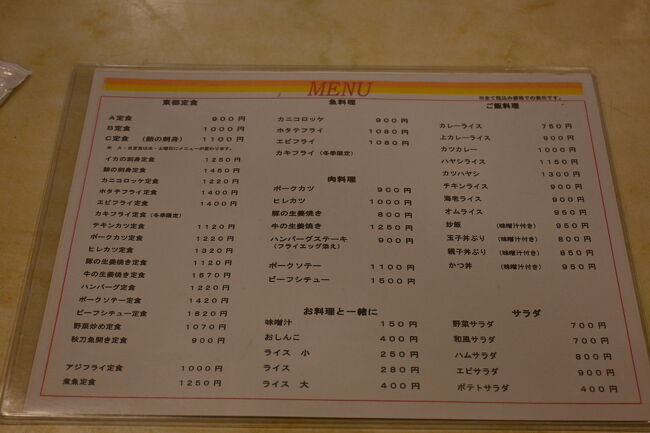 MENU
※全て税込み価格での表示です。
東都定食
A定食 900円
B定食 1000円
C定食 (鮪の刺身) 1100円
※ A・B定食は水・土曜日にメニューが変わります。
イカの刺身定食 1250円
鮪の刺身定食 1450円
カニコロッケ定食 1220円
ホタテフライ定食 1400円
エビフライ定食 1400円
カキフライ定食(冬季限定)
チキンカツ定食 1120円
ポークカツ定食 1220円
ヒレカツ定食 1320円
豚の生姜焼き定食 1120円
牛の生姜焼き定食 1570円
ハンバーグ定食 1220円
ポークソテー定食 1420円
ビーフシチュー定食 1820円
野菜炒め定食 1070円
秋刀魚開き定食 900円
アジフライ定食 1000円
煮魚定食 1250円
魚料理
カニコロッケ 900円
ホタテフライ 1080円
エビフライ 1080円
カキフライ(冬季限定)
肉料理
ポークカツ 900円
ヒレカツ 1000円
豚の生姜焼き 800円
牛の生姜焼き 1250円
ハンバーグステーキ 900円
(フライエッグ添え)
ポークソテー 1100円
ビーフシチュー 1500円
お料理と一緒に
味噌汁 150円
おしんこ 400円
ライス 小 250円
ライス 280円
ライス 大 400円
ご飯料理
カレーライス 750円
上カレーライス 900円
カツカレー 1000円
ハヤシライス 1150円
カツハヤシ 1300円
チキンライス 900円
海老ライス 900円
オムライス 950円
炒飯 (味噌汁付き) 950円
玉子丼ぶり (味噌汁付き) 800円
親子丼ぶり (味噌汁付き) 850円
かつ丼 (味噌汁付き) 950円
サラダ
野菜サラダ 700円
和風サラダ 700円
ハムサラダ 800円
エビサラダ 900円
ポテトサラダ 400円